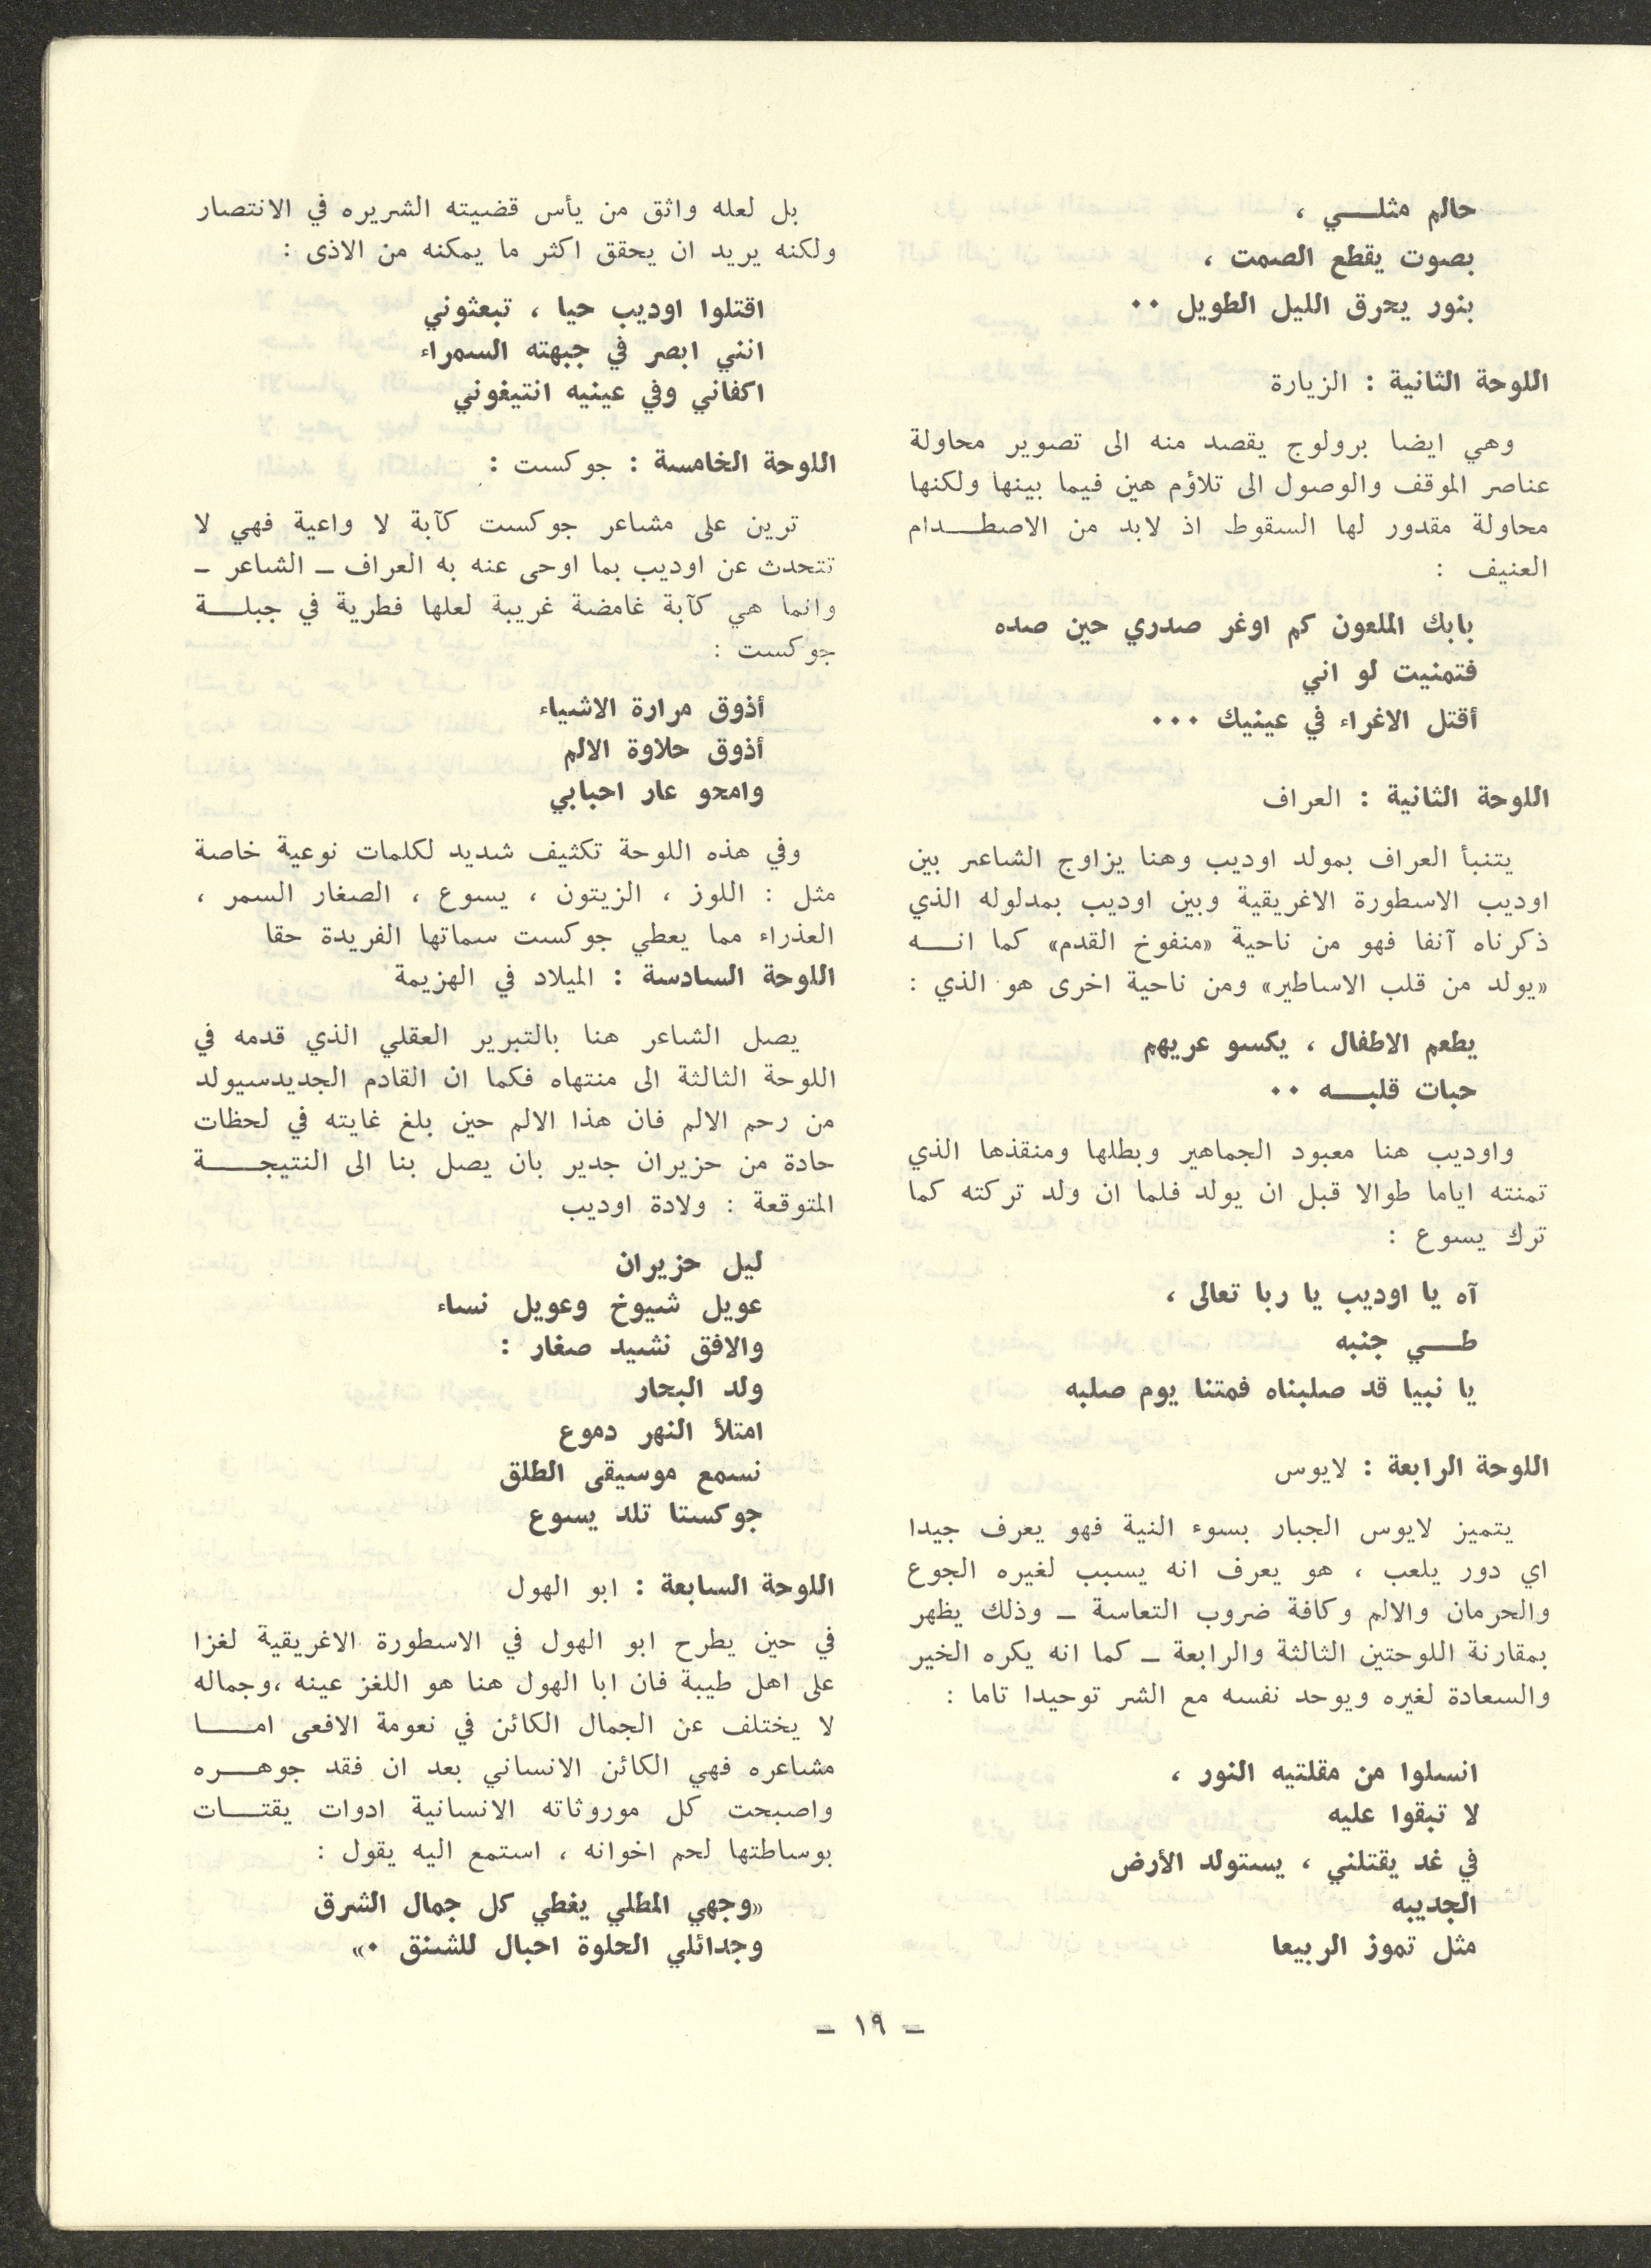 حالم مثلـــي ،
بصوت يقطع الصمت ،
بنور يحرق الليل الطويل ٠٠
اللوحة الثانية : الزيارة
وهي ايضا برولوج يقصد منه الى تصوير محاولة
عناصر الموقف والوصول الى تلاؤم هين فيما بينها ولكنها
محاولة مقدور لها السقوط اذ لابد من الاصطـــدام
العنيف :
بابك الملعون كم اوغر صدري حين صده
فتمنيت لو اني
أقتل الاغراء في عينيك ٠٠٠
اللوحة الثانية : العراف
يتنبأ العراف بمولد اوديب وهنا يزاوج الشاعر بين
اوديب الاسطورة الاغريقية وبين اوديب بمدلوله الذي
ذكرناه آنفا فهو من ناحية «منفوخ القدم» كما انـــه
«يولد من قلب الاساطير» ومن ناحية اخرى هو الذي :
يطعم الاطفال ، يكسو عريهم
حبات قلبـــه ٠٠
واوديب هنا معبود الجماهير وبطلها ومنقذها الذي
تمنته اياما طوالا قبل ان يولد فلما ان ولد تركته كما
ترك يسوع :
آه يا اوديب يا ربا تعالى ،
طـــي جنبه
يا نبيا قد صلبناه فمتنا يوم صلبه
اللوحة الرابعة : لايوس
يتميز لايوس الجبار بسوء النية فهو يعرف جيدا
اي دور يلعب ، هو يعرف انه يسبب لغيره الجوع
والحرمان والالم وكافة ضروب التعاسة ــ وذلك يظهر
بمقارنة اللوحتين الثالثة والرابعة ــ كما انه يكره الخير
والسعادة لغيره ويوحد نفسه مع الشر توحيدا تاما :
انسلوا من مقلتيه النور ،
لا تبقوا عليه
في غد يقتلني ، يستولد الأرض
الجديبه
مثل تموز الربيعا
بل لعله واثق من يأس قضيته الشريره في الانتصار
ولكنه يريد ان يحقق اكثر ما يمكنه من الاذى :
اقتلوا اوديب حيا ، تبعثوني
انني ابصر في جبهته السمراء
اكفاني وفي عينيه انتيغوني
اللوحة الخامسة : جوكست :
ترين على مشاعر جوكست كآبة لا واعية فهي لا
تتحدث عن اوديب بما اوحى عنه به العراف ــ الشاعر ــ
وانما هي كآبة غامضة غريبة لعلها فطرية في جبلـــة
جوكست :
أذوق مرارة الاشياء
أذوق حلاوة الالم
وامحو عار احبابي
وفي هذه اللوحة تكثيف شديد لكلمات نوعية خاصة
مثل : اللوز ، الزيتون ، يسوع ، الصغار السمر ،
العذراء مما يعطي جوكست سماتها الفريدة حقا
اللوحة السادسة : الميلاد في الهزيمة
يصل الشاعر هنا بالتبرير العقلي الذي قدمه في
اللوحة الثالثة الى منتهاه فكما ان القادم الجديدسيولد
من رحم الالم فان هذا الالم حين بلغ غايته في لحظات
حادة من حزيران جدير بان يصل بنا الى النتيجـــة
المتوقعة : ولادة اوديب
ليل حزيران
عويل شيوخ وعويل نساء
والافق نشيد صغار :
ولد البحار
امتلأ النهر دموع
نسمع موسيقى الطلق
جوكستا تلد يسوع
اللوحة السابعة : ابو الهول
في حين يطرح ابو الهول في الاسطورة الاغريقية لغزا
على اهل طيبة فان ابا الهول هنا هو اللغز عينه ،وجماله
لا يختلف عن الجمال الكائن في نعومة الافعى امـــا
مشاعره فهي الكائن الانساني بعد ان فقد جوهـــره
واصبحت كل موروثاته الانسانية ادوات يقتـــات
بوساطتها لحم اخوانه ، استمع اليه يقول :
«وجهي المطلي يغطي كل جمال الشرق
وجدائلي الحلوة احبال للشنق ٠»
ــ ١٩ ــ